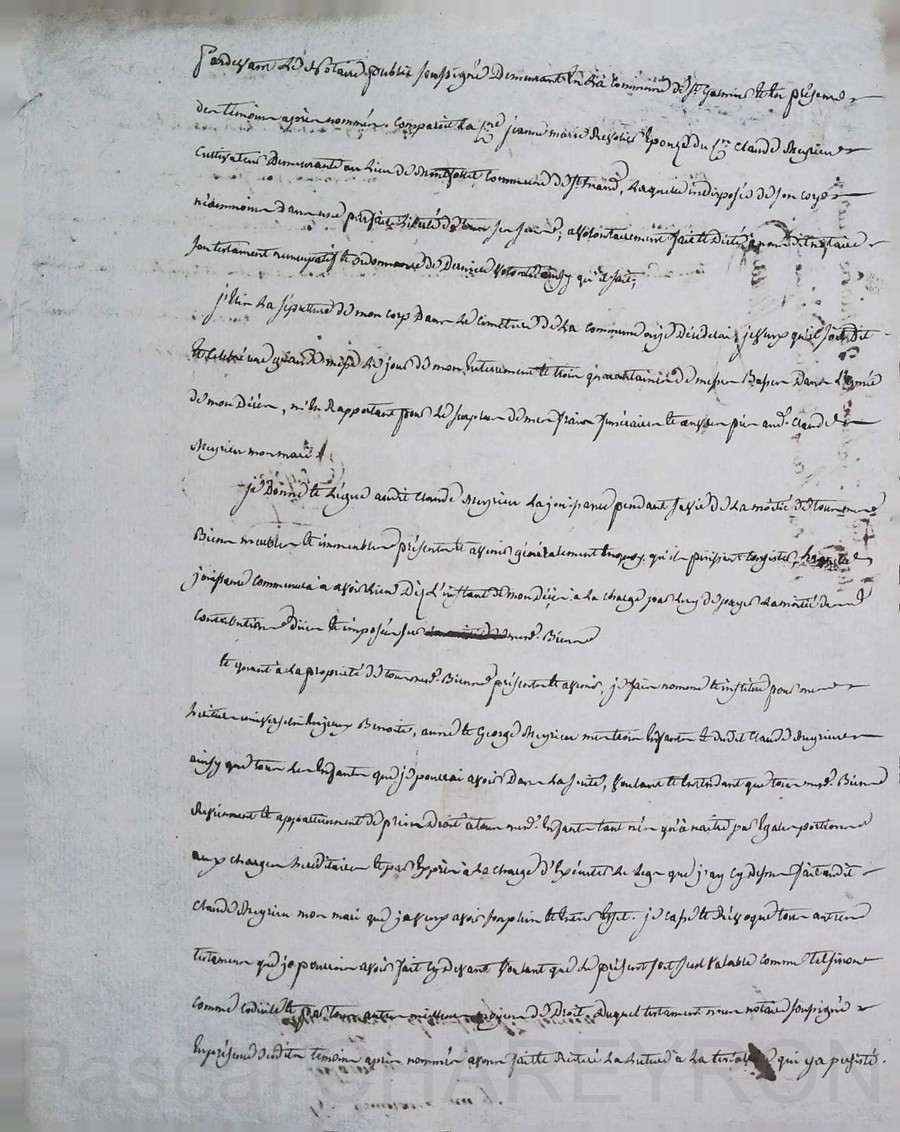 Pardevant le Notaire public soussigné Demeurant en la commune de St Genis et en présence
des temoins après nommés. comparoit la cne jeanne marie épouse du cn Claude Meyrieu
Cultivateur Demeurant au Lieu de Commune de Laquelle indisposée de son corps
néanmoins dans une parfaite liberté de tous ses sens, a volontairement fait et dicté à nous dit notaire
son testament nuncupatif et ordonnance de Derniere volonté ainsy qu'il suit;
j'Elis la sépulture de mon corp Dans le cimetiere de la commune où je Décéderai, je veux qu'il soit dit
et celebré une grande messe le jour de mon Enterrement et trois quarantaines de messes Basses Dans l'année
de mon Décès, m'En Rapportant pour le surplus de mes frais funéraires et œuvres pies aud. Claude
Meyrieu mon mari.
je Donne et Lègue audit Claude Meyrieu la jouissance pendant sa vie de la moitié de tous mes
Biens meubles et immeubles présents et avenir généralement En quoy qu'ils puissent consister,
jouissance commencera à avoir lieu Dès L'instant de mon Décès à la charge par luy de payer la moitié des
contributions et imposées sur mesd. Biens
Et quant à la propriété de tous mesd. Biens présents et avenir, je fais nomme et institue pour mes
héritiers universels Egaux Benoite, anne et George Meyrieu mes trois Enfants Et dudit Claude Meyrieu
ainsy que tous les Enfants que je pourrai avoir Dans la suite, voulant et Entendant que tous mesd. Biens
Reviennent et appartiennent de plein Droit à tous mesd. Enfants tant nés qu'à naître par Egales portions
aux charges héréditaires et par Exprès à la charge d'Exécuter le legs que j'ay cy dessus fait audit
Claude Meyrieu mon mari que je veux avoir son plein et Entier Effet. je casse et Révoque tous autres
testaments que je pourrois avoir fait cy devant voulant que le présent soit seul valable comme tel sinon
comme codicile et par tous autres meilleurs moyens de Droit. Duquel testament nous notaire soussigné
En présence desdits temoins après nommés avons fait et réitéré la lecture à la qui y a persisté.
Pascal CHAREYRON